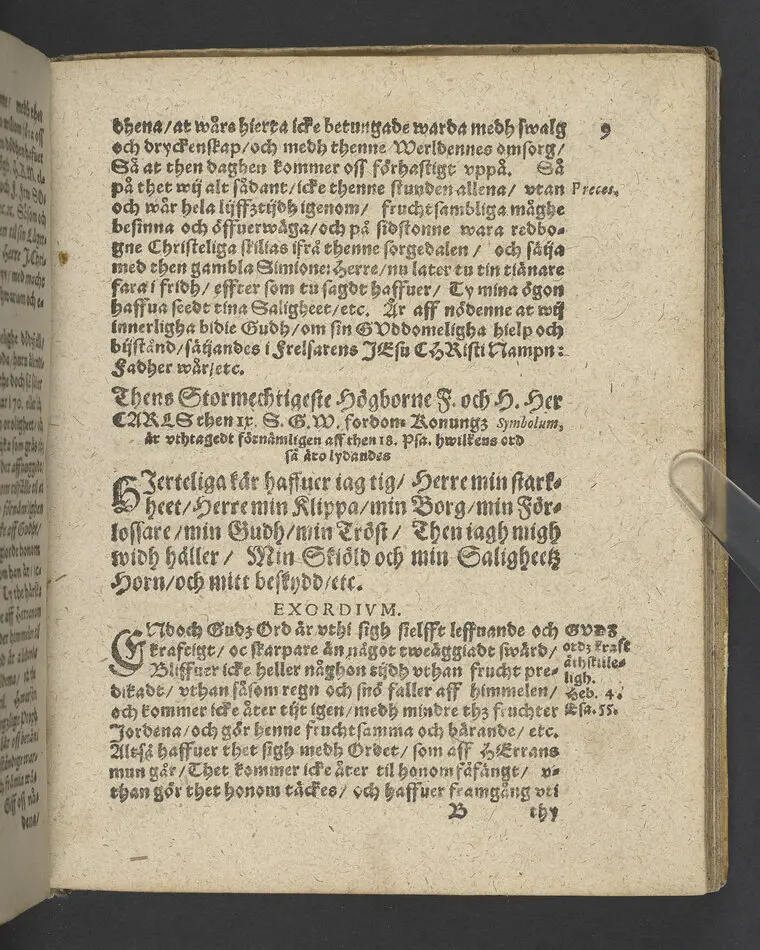 9
dhena/at wåre hierta icke betungade warda medh swalg
och dryckenskap/och medh thenne Werldennes omsorg/
Så at then daghen kommer oss förhastigt vppå. Så
på thet wij alt sådant/icke thenne stunden allena/ vtan
Preces.
och wår hela lijffztijdh igenom/ fruchtsambliga måghe
besinna och öffuerwäga/och på sidstonne wara redbo-
gne Christeliga skilias ifrå thenne sorgedalen/ och sätja
med then gambla Simione: Herre/nu later tu tin tiänare
fara i fridh/ effter som tu sagdt haffuer/ Ty mina ögon
haffua seedt tina Saligheet/etc. Är aff nödenne at wij
innerligha bidie Gudh/om sin GVddomeligha hielp och
bijstånd/sätjandes i Frelsarens JEsu CHRisti Nampn:
Fadher wår/etc.
Thens Stormechtigeste Högborne F. och H. Her
CARLS then IX. S. G. W. fordom Konungz Symbolum,
är vthtagedt förnämligen aff then 18. Psa. hwilkens ord
så äro lydandes
HJerteliga kär haffuer iag tig/ Herre min stark-
heet/Herre min Klippa/min Borg/min För-
lossare/min Gudh/min Tröst/ Then iagh migh
widh håller/ Min Skiöld och min Saligheetz
Horn/och mitt beskydd/etc.
EXORDIVM.
ENdoch Gudz Ord är vthi sigh sielfft leffuande och
krafftigt/ oc skarpare än något tweäggiadt swärd/
Bliffuer icke heller någhon tijdh vthan frucht pre-
dikadt/ vthan såsom regn och snö faller aff himmelen/
och kommer icke åter tijt igen/medh mindre thz fruchter
Jordena/och gör henne fruchtsamma och bärande/ etc.
Altså haffuer thet sigh medh Ordet/ som aff HErrans
mun går/Thet kommer icke åter til honom fåfängt/ v-
than gör thet honom täckes/ och haffuer framgång vti
GVDZ
ordz krafft
äthskille-
ligh.
Heb. 4.
Esa. 55.
B thy